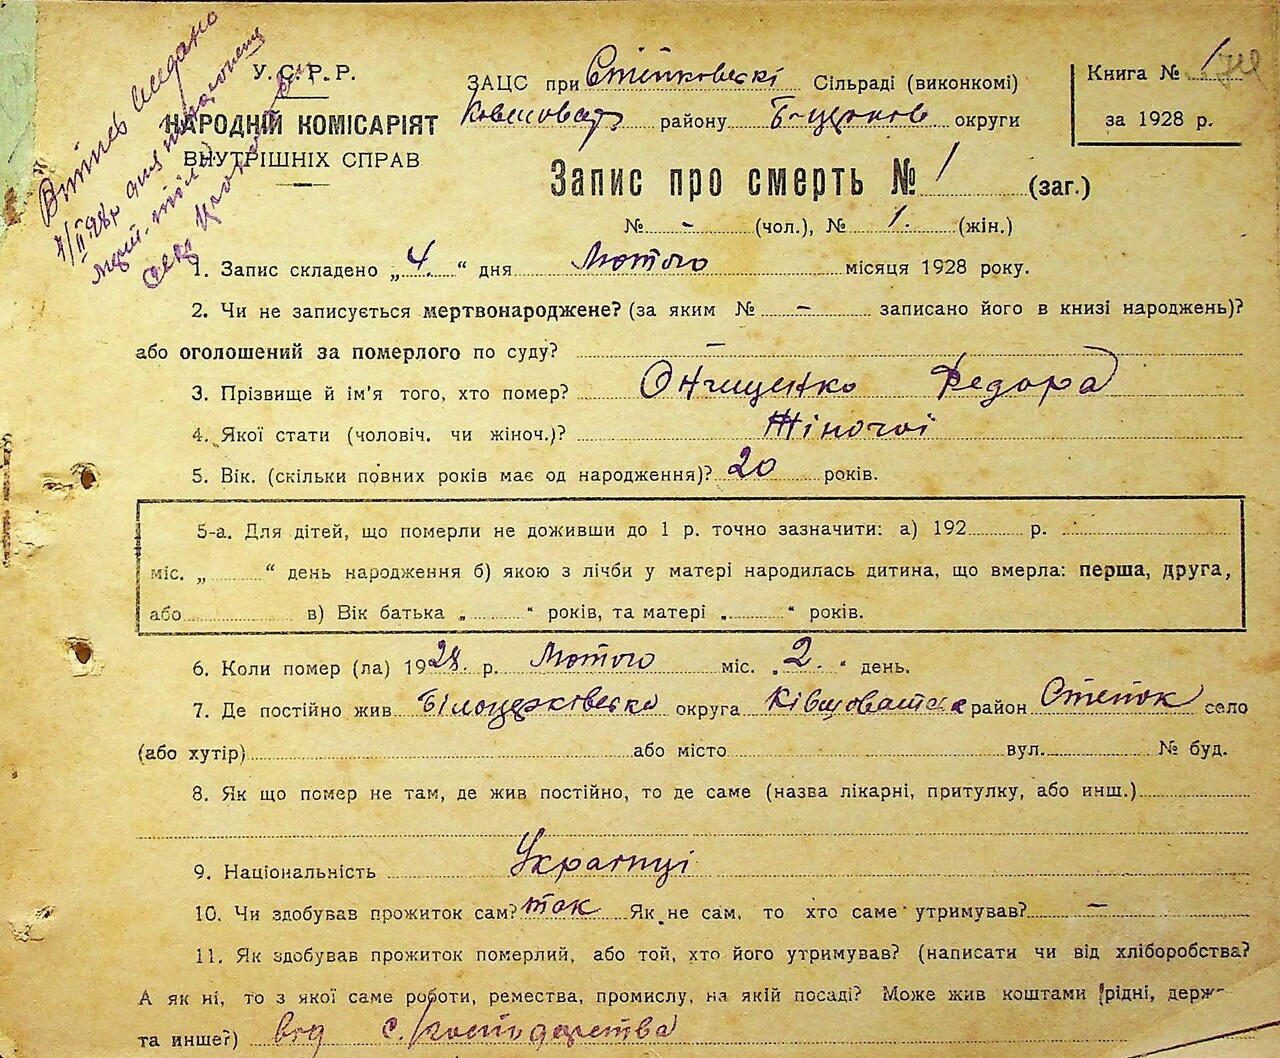 Витяг видано
У. С. Р. Р.
НАРОДНІЙ КОМІСАРІЯТ
ВНУТРІШНІХ СПРАВ
ЗАЦС при Степковескі Сільраді (виконкомі)
району Б-церков округи
Книга № 1
за 1928 р.
Запис про смерть № 1 (заг.)
№ - (чол.), № 1. (жін.)
1. Запис складено „4.“ дня Лютого місяця 1928 року.
2. Чи не записується мертвонароджене? (за яким № - записано його в книзі народжень)?
або оголошений за померлого по суду? -
3. Прізвище й ім'я того, хто помер? Онищенко Федора
4. Якої стати (чоловіч. чи жіноч.)? Жіночої
5. Вік. (скільки повних років має од народження)? 20 років.
5-а. Для дітей, що померли не доживши до 1 р. точно зазначити: а) 192 р.
міс. „ “ день народження б) якою з лічби у матері народилась дитина, що вмерла: перша, друга,
або в) Вік батька „ “ років, та матері „ “ років.
6. Коли помер (ла) 1928. р. Лютого міс. „2.“ день.
7. Де постійно жив Білоцерківська округа Ківшоватська район Степок село
(або хутір) або місто вул. № буд.
8. Як що помер не там, де жив постійно, то де саме (назва лікарні, притулку, або инш.)
9. Національність Українці
10. Чи здобував прожиток сам? так Як не сам, то хто саме утримував? -
11. Як здобував прожиток померлий, або той, хто його утримував? (написати чи від хліборобства?
А як ні, то з якої саме роботи, ремества, промислу, на якій посаді? Може жив коштами (рідні, держ-
та инше?) від с. господарства